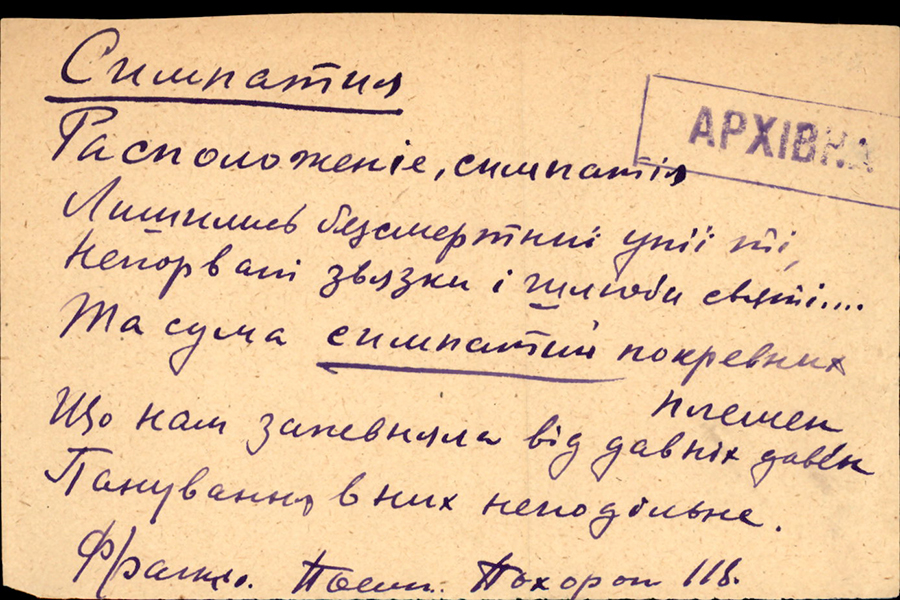 Симпатия
АРХІВНА
Расположеніе, симпатія
Лишились безсмертниї унії ті,
Непорвані звязки і шлюби святі....
Та сума симпатий покревних
племен
Що нам запевняла від давніх давен
Панування в них неподільне.
Франко. Поеми. Похорон 118.